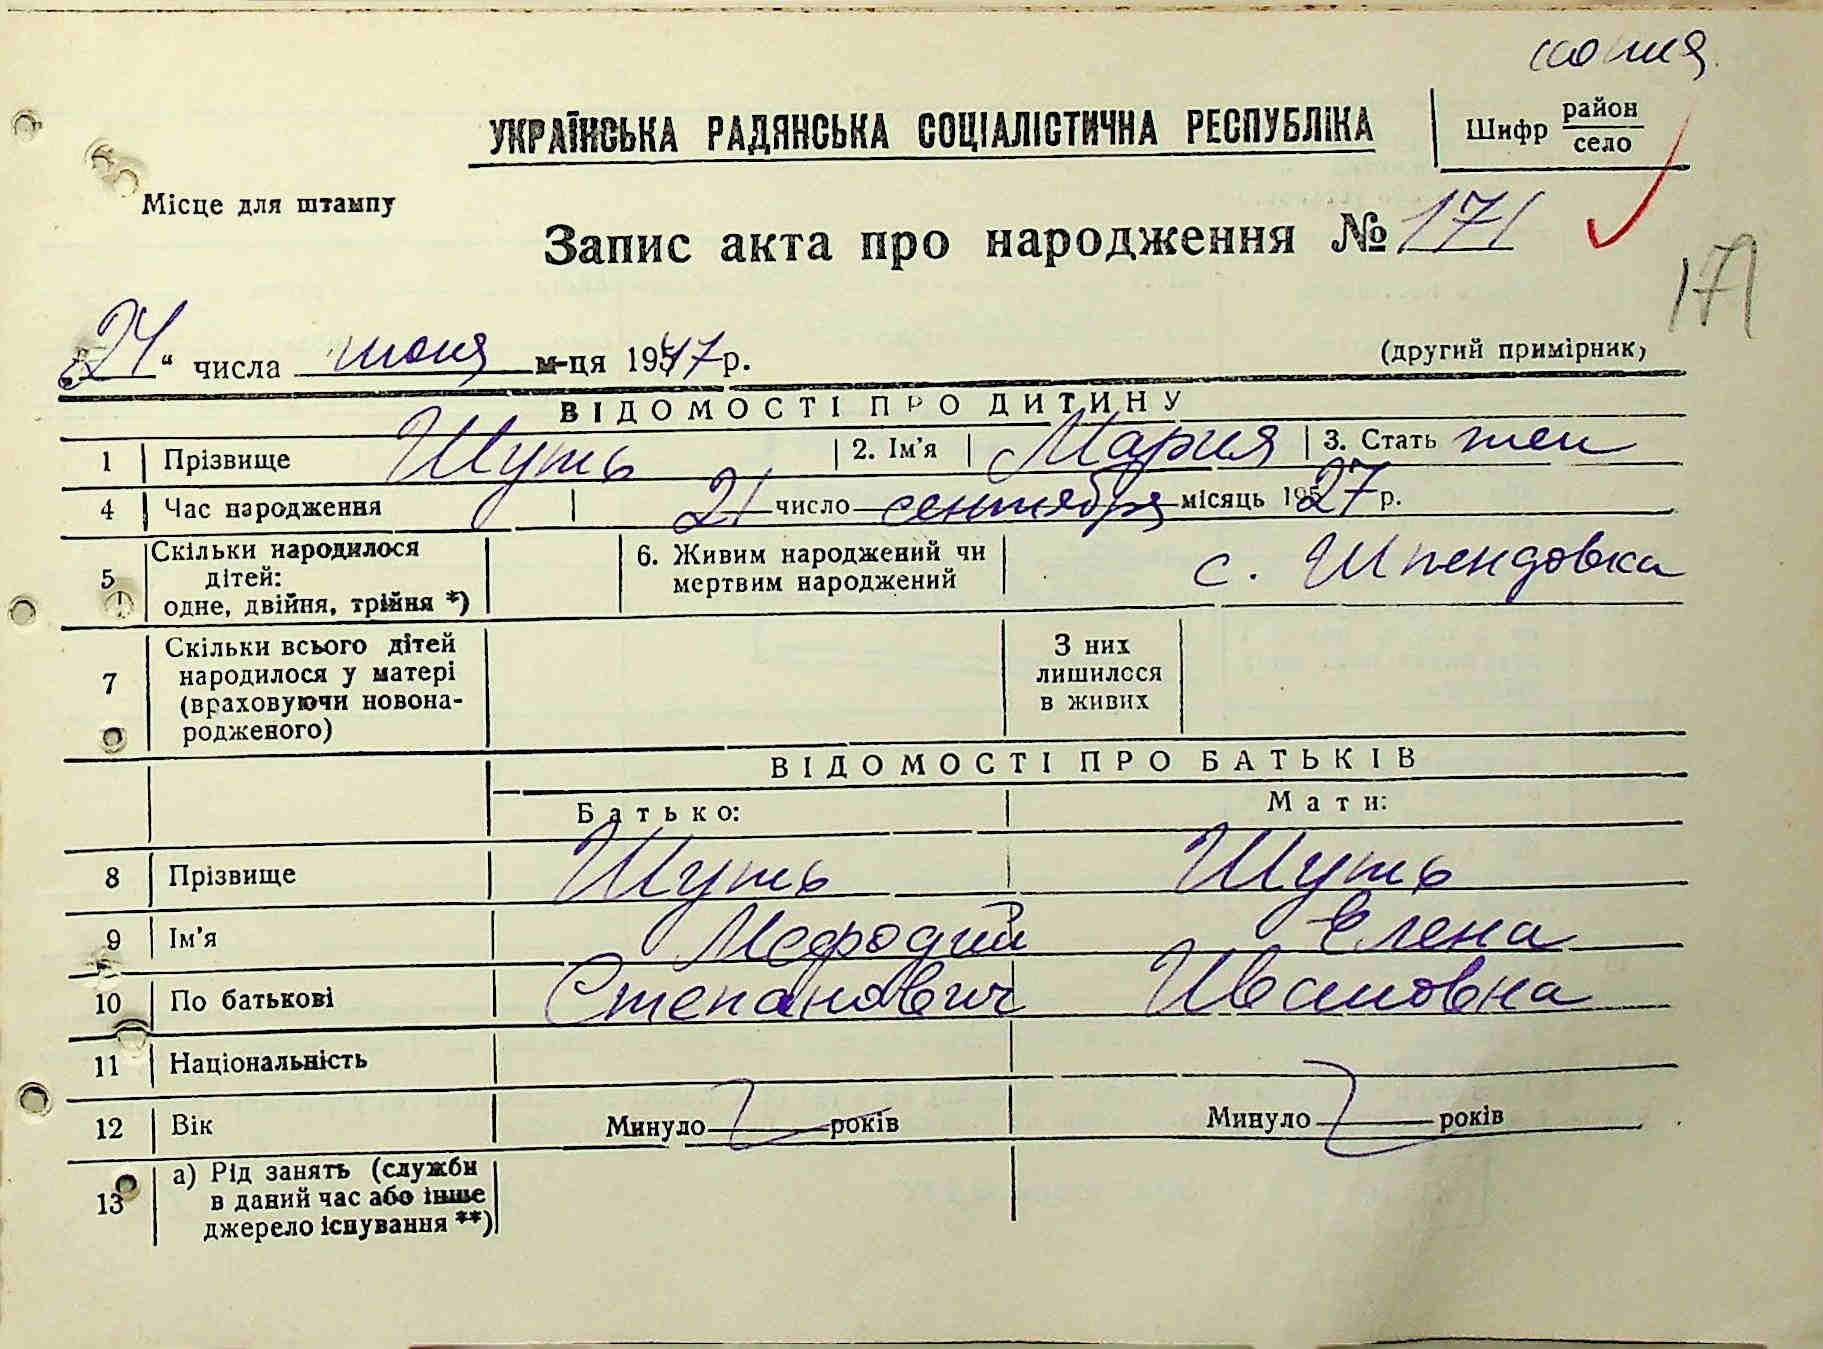 копия
УКРАЇНСЬКА РАДЯНСЬКА СОЦІАЛІСТИЧНА РЕСПУБЛІКА
Шифр район
село
Місце для штампу
Запис акта про народження № 171
171
„24“ числа июня м-ця 1947 р.
(другий примірник)
ВІДОМОСТІ ПРО ДИТИНУ
1 Прізвище Шуть 2. Ім'я Мария 3. Стать жен
4 Час народження 21 число сентября місяць 1927 р.
5 Скільки народилося дітей: одне, двійня, трійня *) 6. Живим народжений чи мертвим народжений с. Шпендовка
7 Скільки всього дітей народилося у матері (враховуючи новонародженого) З них лишилося в живих
ВІДОМОСТІ ПРО БАТЬКІВ
Батько: Мати:
8 Прізвище Шуть Шуть
9 Ім'я Мефодий Елена
10 По батькові Степанович Ивановна
11 Національність
12 Вік Минуло років Минуло років
13 а) Рід занять (служби в даний час або інше джерело існування **)